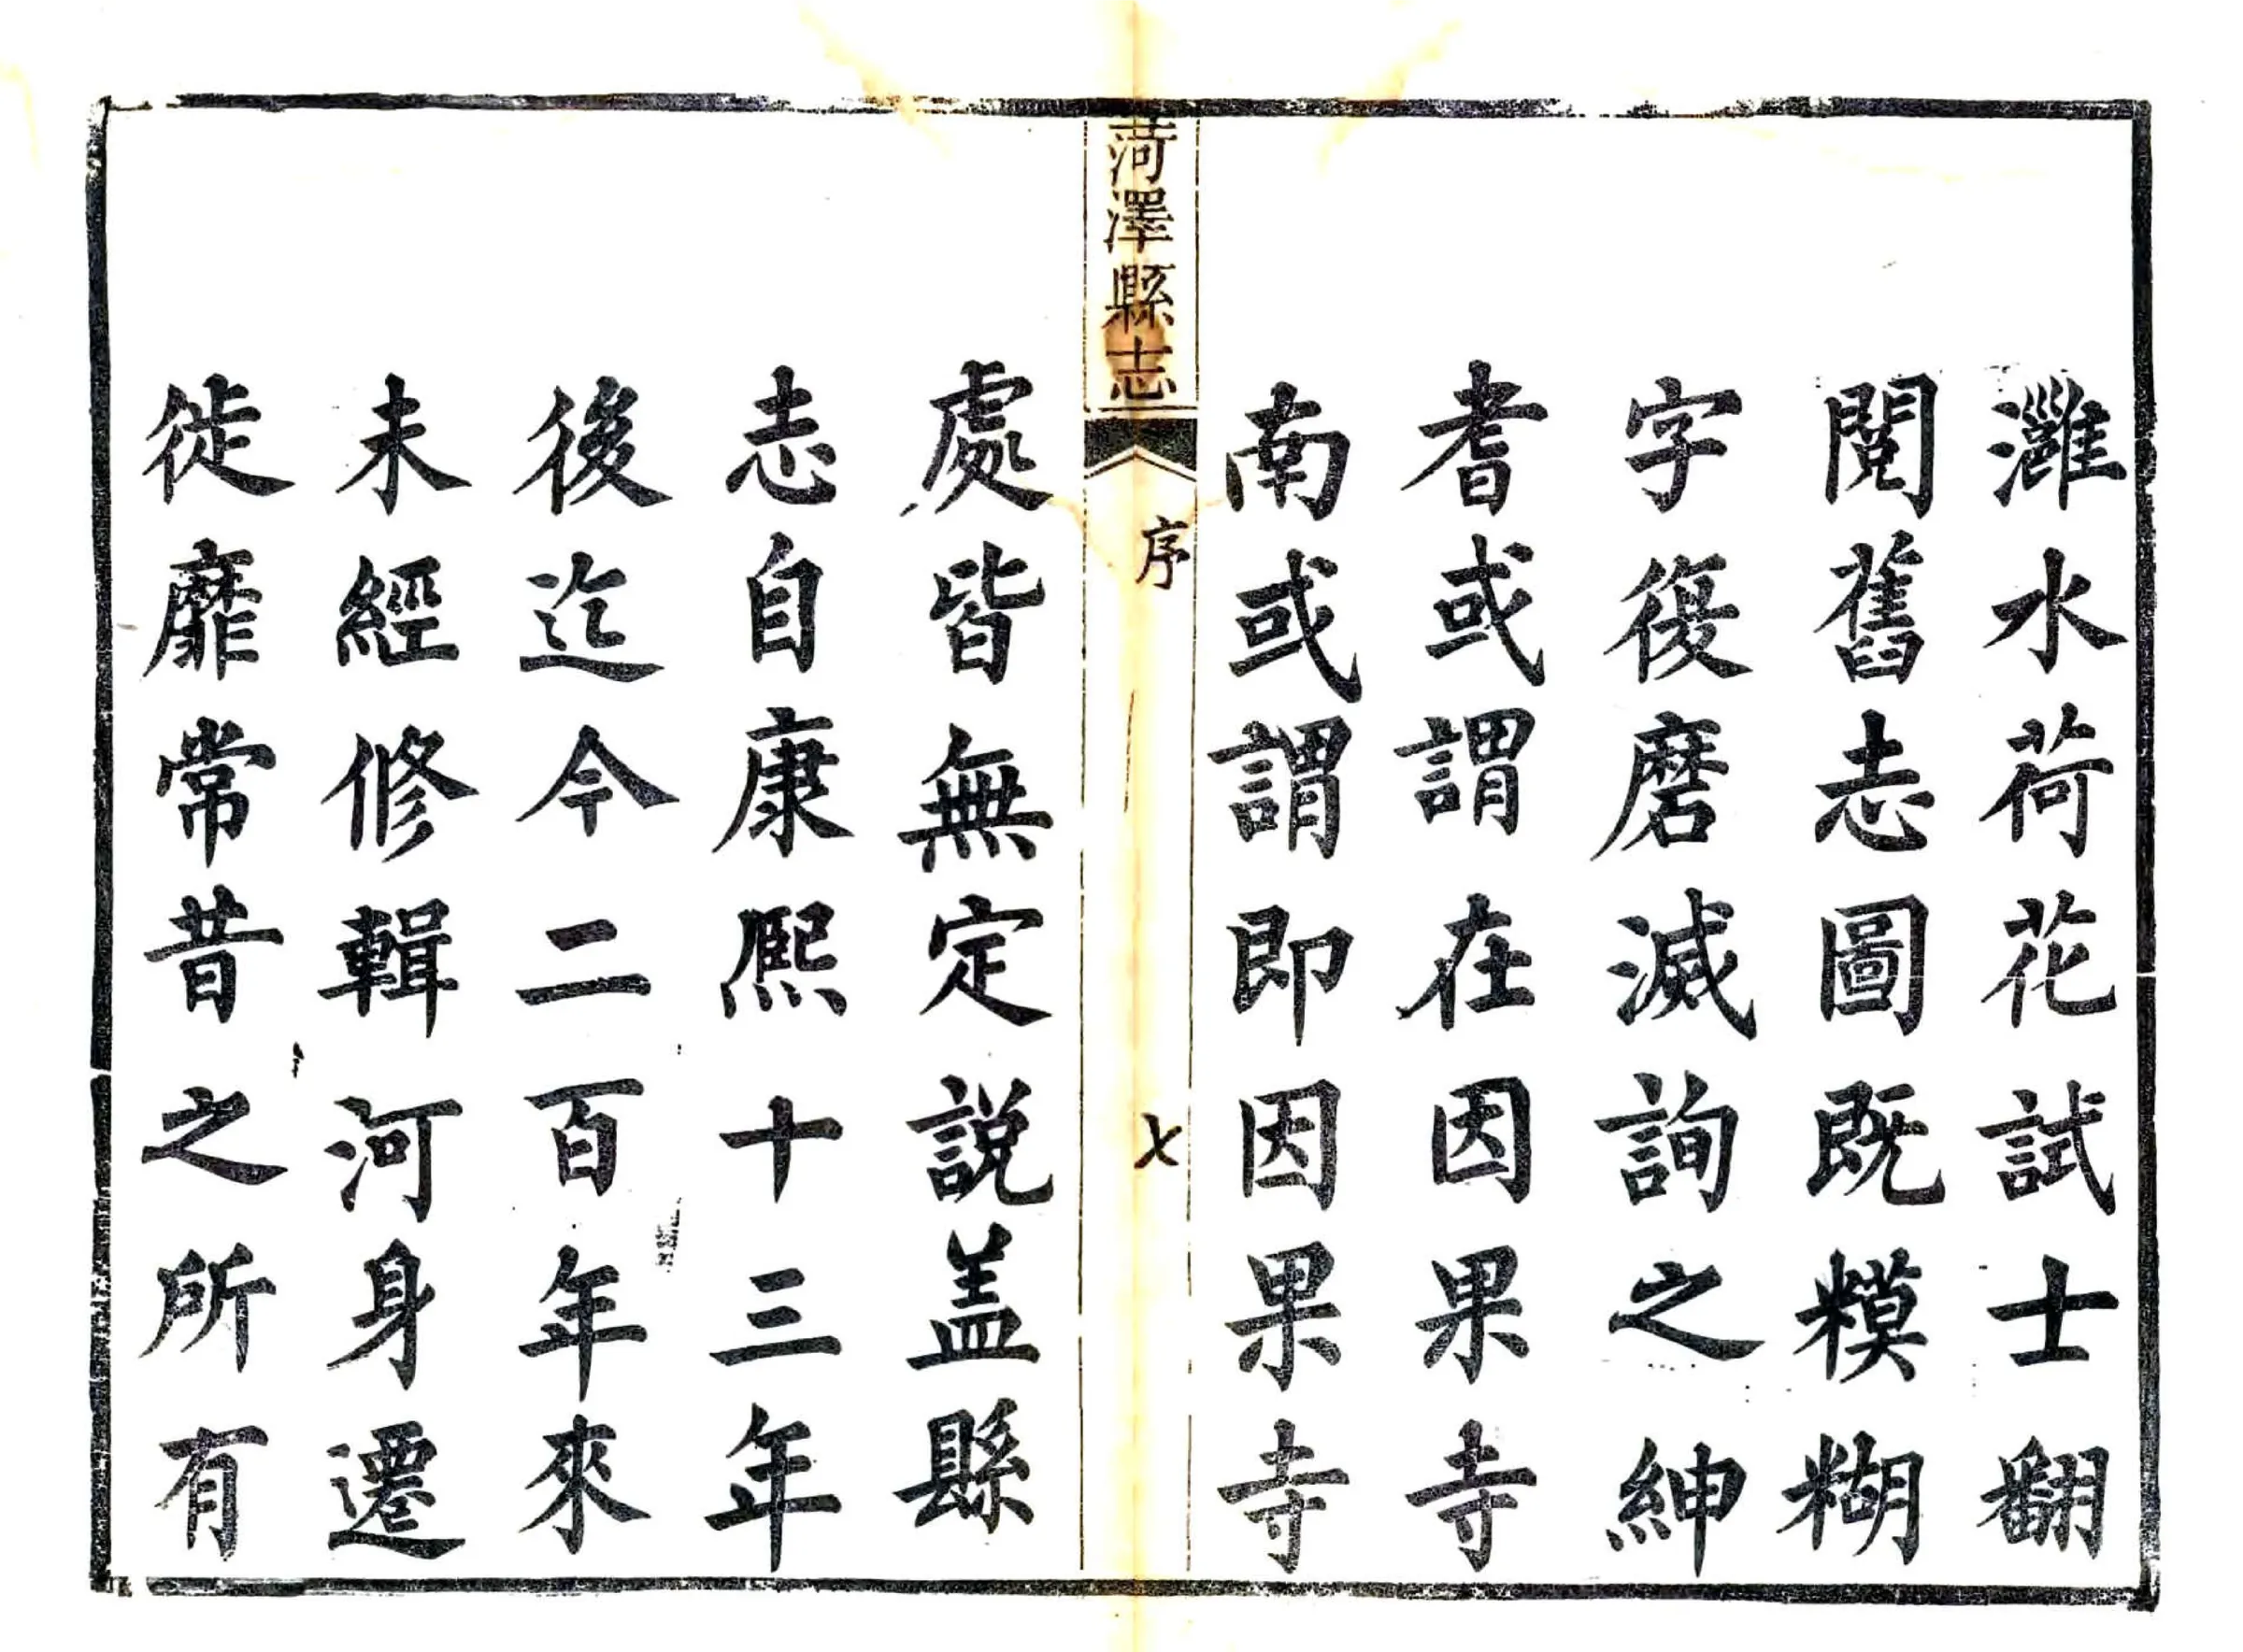 灉水荷花試士翻
閱舊志圖既糢糊
字復磨滅詢之紳
耆或謂在因果寺
南或謂即因果寺
菏澤縣志
序
七
處皆無定説盖縣
志自康熙十三年
後迄今二百年來
未經修輯河身遷
徙靡常昔之所有